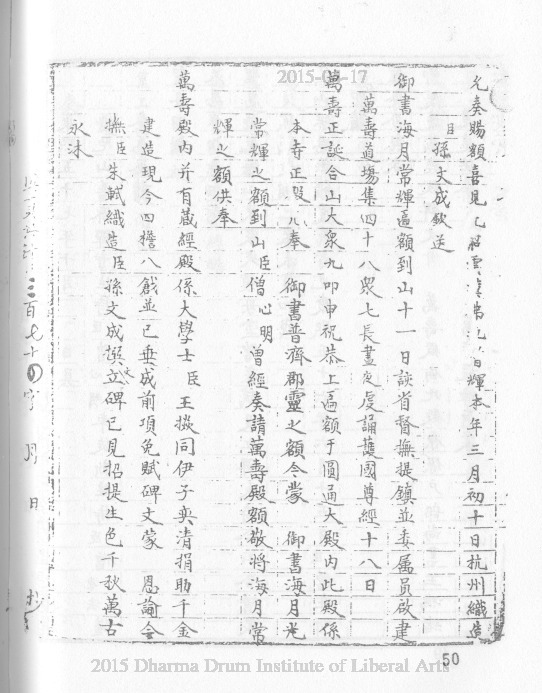 2015-0 -17
允奏賜額喜見 雲漢常 日輝本年三月初十日杭州織造
臣孫文成欽送
御書海月常輝匾額到山十一日誤省督撫提鎮並委属員啟建
萬壽道場集四十八眾七長晝夜虔誦護國尊經十八日
萬壽正誕合山大衆九叩申祝恭上匾額于圓通大殿内此殿係
本寺正殿 奉 御書普濟郡靈之額今蒙 御書海月光
常輝之額到山臣僧心明曾經奏請萬壽殿額敬將海月常
輝之額供奉
萬壽殿内并有蔵經殿係大學士臣王掞同伊子奕清捐助千金
建造現今四檐八戧並已垂成前項免賦碑文蒙 恩諭令
撫臣朱軾織造臣孫文成撰文立碑已見招提生色千秋萬古
永沐
百七十 字 月 日
50
2015 Dharma Drum Institute of Liberal Arts